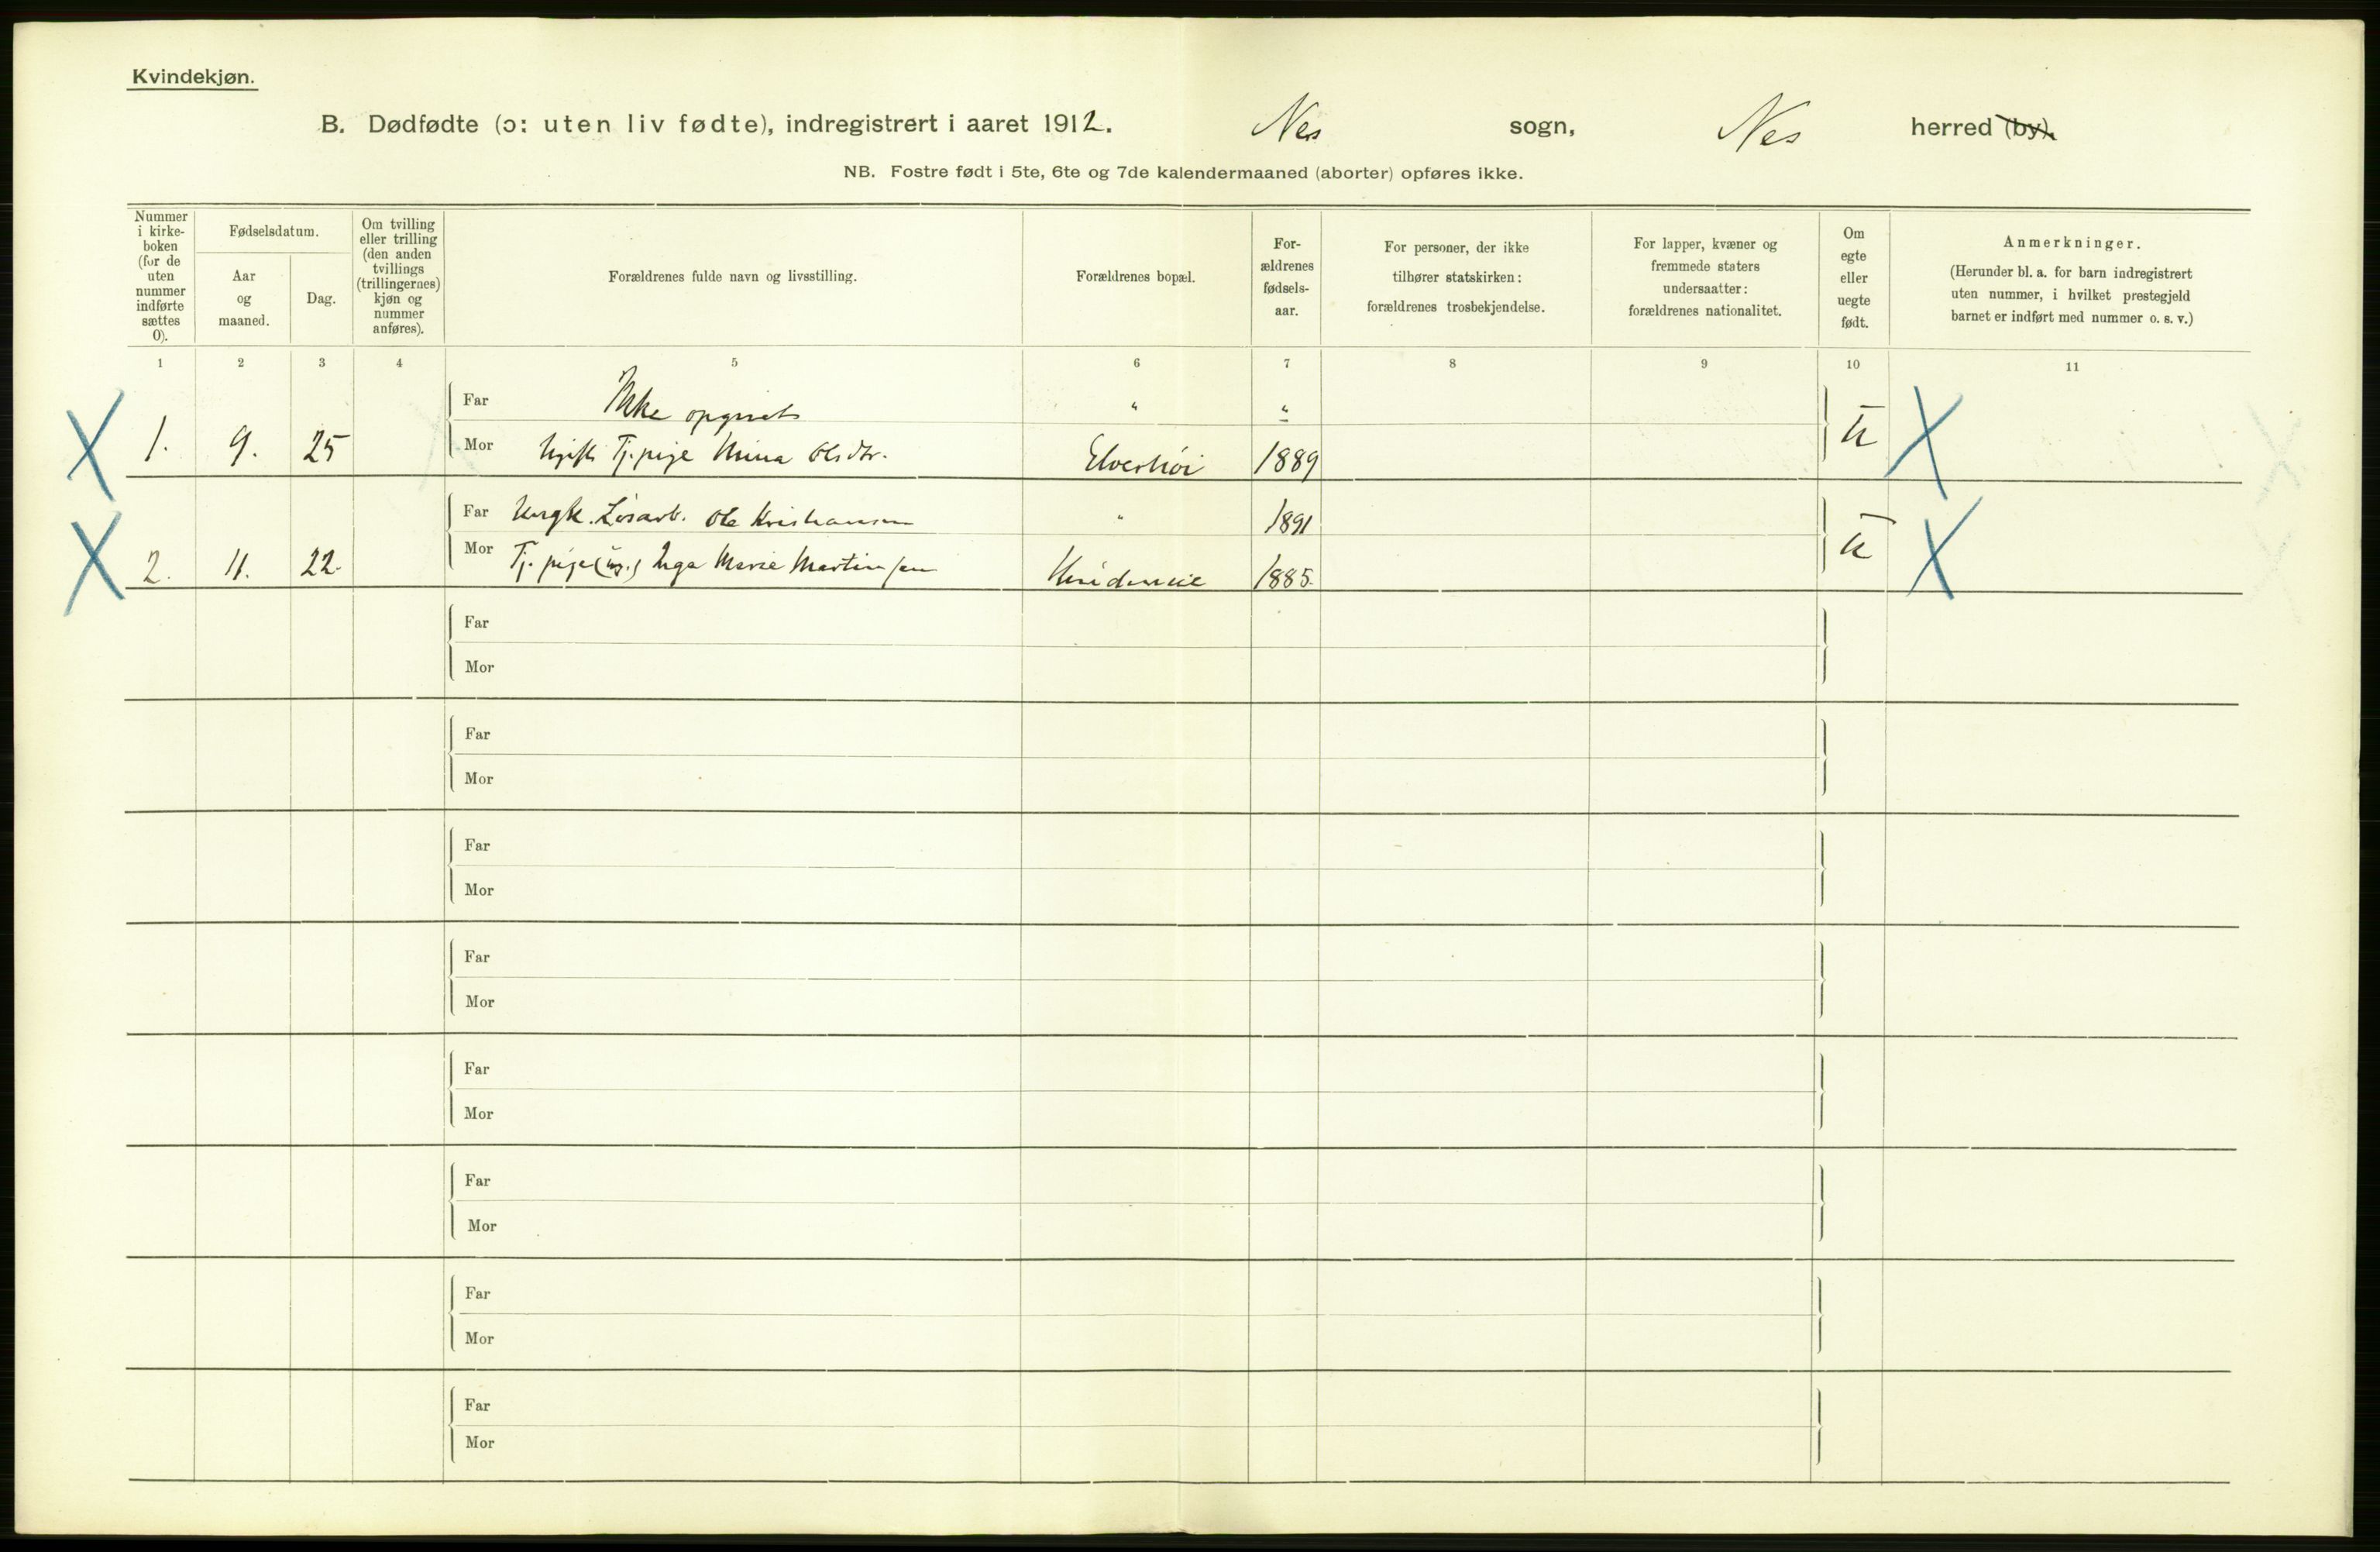 Kvindekjøn.
B. Dødfødte (ɔ: uten liv fødte), indregistrert i aaret 1912. Nes sogn, Nes herred (by).
NB. Fostre født i 5te, 6te og 7de kalendermaaned (aborter) opføres ikke.
Nummer
i kirke-
boken
(for de
uten
nummer
indførte
sættes
0).
Fødselsdatum.
Aar
og
maaned.
Dag.
Om tvilling
eller trilling
(den anden
tvillings
(trillingernes)
kjøn og
nummer
anføres).
Forældrenes fulde navn og livsstilling.
Forældrenes bopæl.
For-
ældrenes
fødsels-
aar.
For personer, der ikke
tilhører statskirken:
forældrenes trosbekjendelse.
For lapper, kvæner og
fremmede staters
undersaatter:
forældrenes nationalitet.
Om
egte
eller
uegte
født.
Anmerkninger.
(Herunder bl. a. for barn indregistrert
uten nummer, i hvilket prestegjeld
barnet er indført med nummer o. s. v.)
1 2 3 4 5 6 7 8 9 10 11
Far Ikke opgivet " "
1. 9. 25 Mor Ugift Tj.pige Mina Olsdtr. Elveshøi 1889 U
Far Ungk. Løsarb. Ole Kristiansen " 1891
2. 11. 22. Mor Tj. pige (ug.) Inga Marie Martinsen 1885. U
Far
Mor
Far
Mor
Far
Mor
Far
Mor
Far
Mor
Far
Mor
Far
Mor
Far
Mor